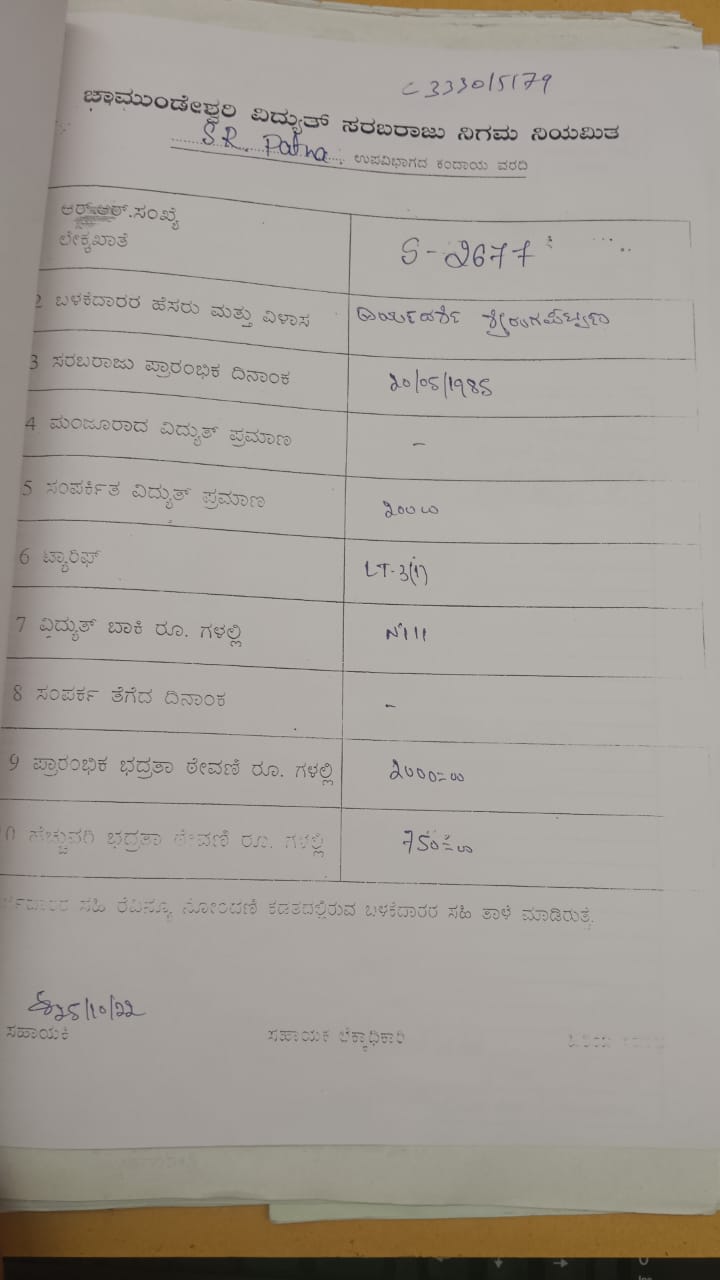 C3330/5179
ಚಾಮುಂಡೇಶ್ವರಿ ವಿದ್ಯುತ್ ಸರಬರಾಜು ನಿಗಮ ನಿಯಮಿತ
S.R. Patna ಉಪವಿಭಾಗದ ಕಂದಾಯ ವರದಿ
ಆರ್.ಆರ್.ಸಂಖ್ಯೆ
ಲೇಕ್ಕಖಾತೆ
S-2677
2 ಬಳಕೆದಾರರ ಹೆಸರು ಮತ್ತು ವಿಳಾಸ
3 ಸರಬರಾಜು ಪ್ರಾರಂಭಿಕ ದಿನಾಂಕ 20/05/1985
4 ಮಂಜೂರಾದ ವಿದ್ಯುತ್ ಪ್ರಮಾಣ –
5 ಸಂಪರ್ಕಿತ ವಿದ್ಯುತ್ ಪ್ರಮಾಣ
6 ಟ್ಯಾರಿಫ್ LT-3(1)
7 ವಿದ್ಯುತ್ ಬಾಕಿ ರೂ. ಗಳಲ್ಲಿ Nill
8 ಸಂಪರ್ಕ ತೆಗೆದ ದಿನಾಂಕ –
9 ಪ್ರಾರಂಭಿಕ ಭದ್ರತಾ ಠೇವಣಿ ರೂ. ಗಳಲ್ಲಿ 2000=00
ಹೆಚ್ಚುವರಿ ಭದ್ರತಾ ಠೇವಣಿ ರೂ. ಗಳಲ್ಲಿ 750=00
ಸಹಿ ರೆವಿನ್ಯೂ ನೋಂದಣಿ ಕಡತದಲ್ಲಿರುವ ಬಳಕೆದಾರರ ಸಹಿ ತಾಳೆ ಮಾಡಿರುತ್ತೆ.
25/10/22
ಸಹಾಯಕ ಸಹಾಯಕ ಲೆಕ್ಕಾಧಿಕಾರಿ